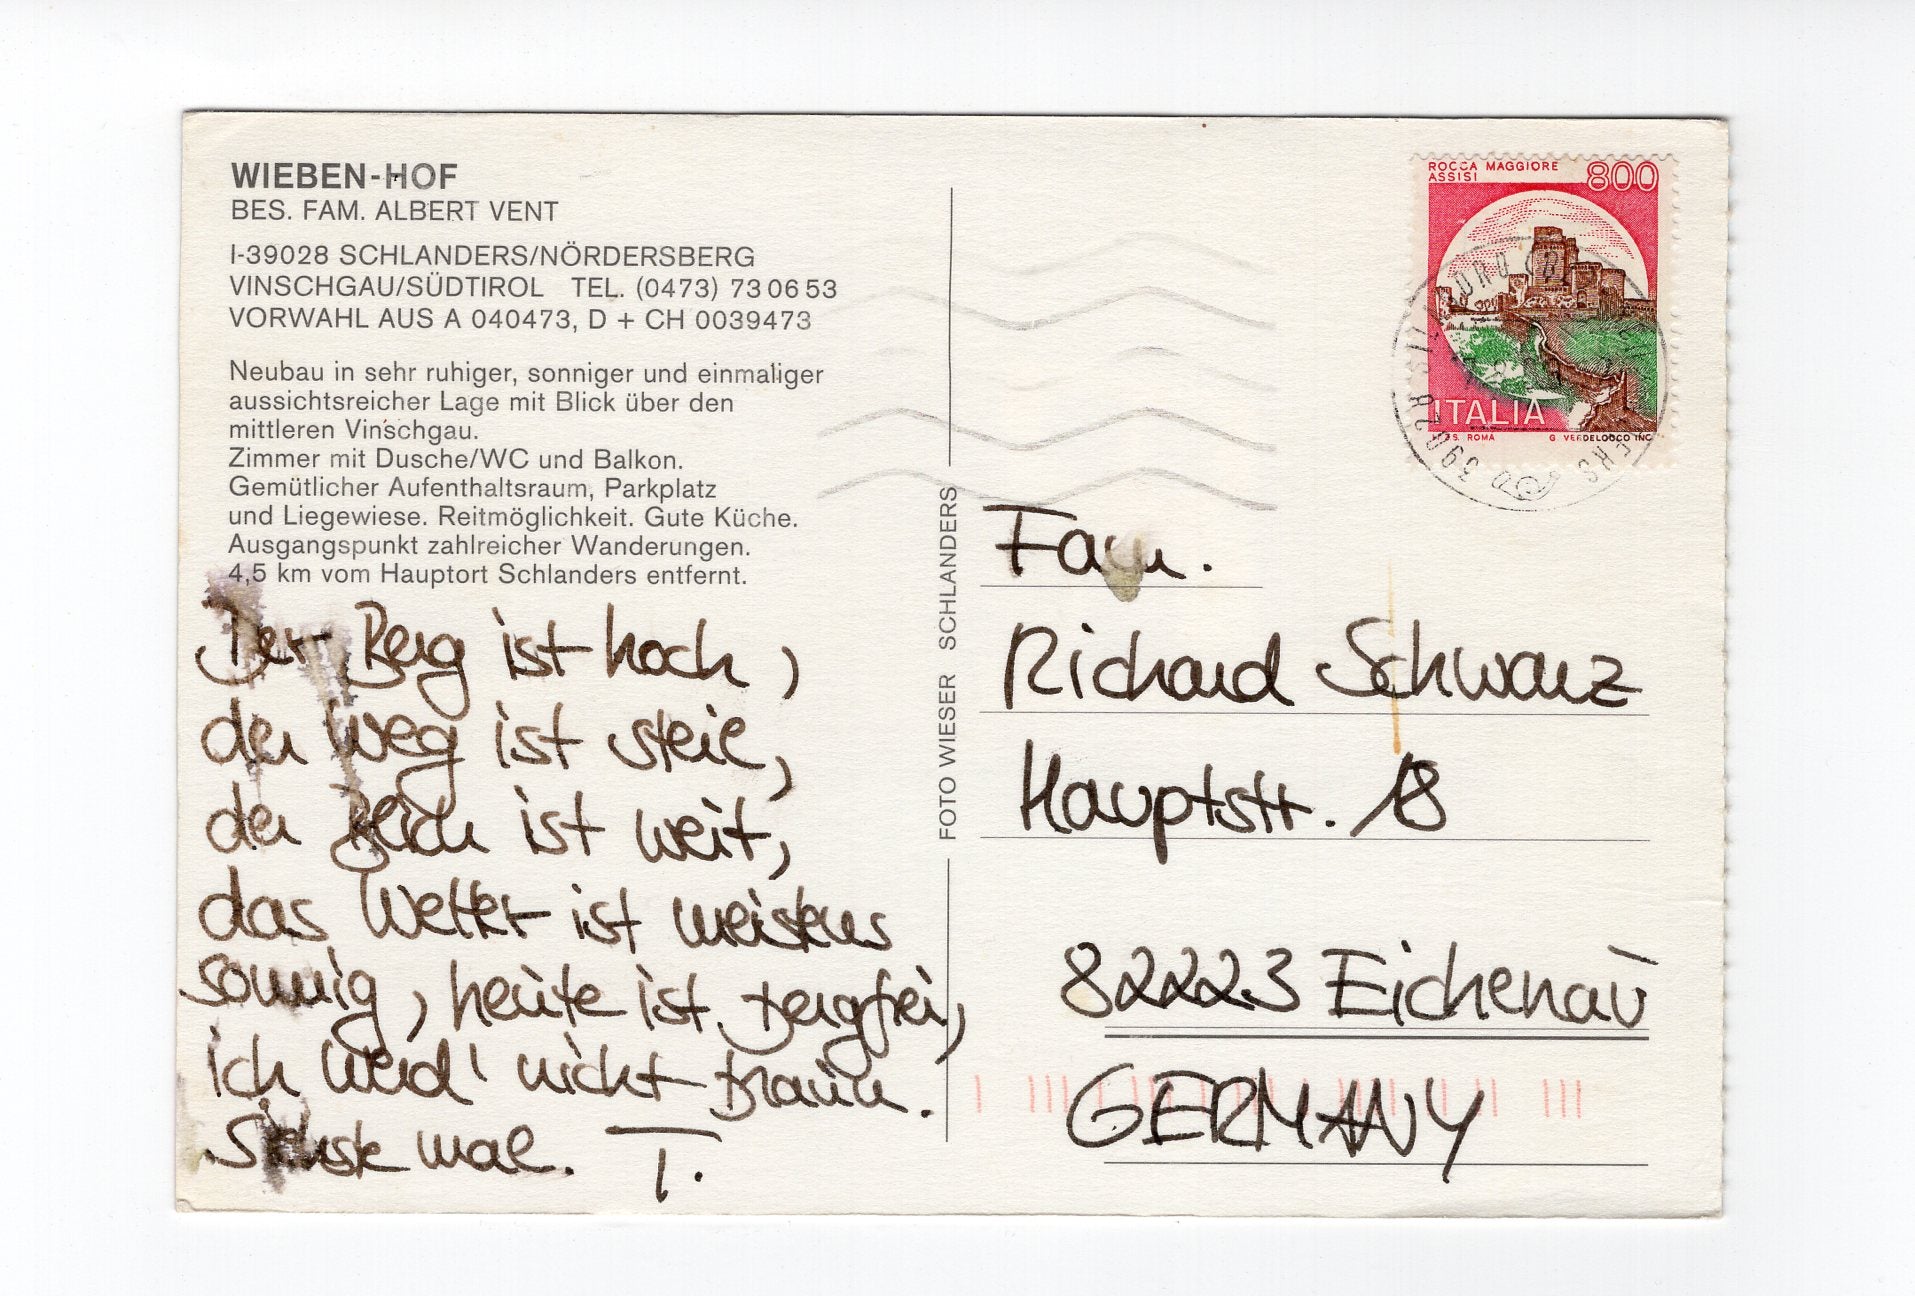 WIEBEN-HOF
BES. FAM. ALBERT VENT
I-39028 SCHLANDERS/NÖRDERSBERG
VINSCHGAU/SÜDTIROL TEL. (0473) 730653
VORWAHL AUS A 040473, D + CH 0039473
Neubau in sehr ruhiger, sonniger und einmaliger
aussichtsreicher Lage mit Blick über den
mittleren Vinschgau.
Zimmer mit Dusche/WC und Balkon.
Gemütlicher Aufenthaltsraum, Parkplatz
und Liegewiese. Reitmöglichkeit. Gute Küche.
Ausgangspunkt zahlreicher Wanderungen.
4,5 km vom Hauptort Schlanders entfernt.
Der Berg ist hoch,
der Weg ist steil,
der ist weit,
das Wetter ist meistens
sonnig, heute ist bergfrei,
ich werd' nicht braun.
Siehste mal. T.
FOTO WIESER SCHLANDERS
ROCCA MAGGIORE
ASSISI
800
ITALIA
I.P.S. ROMA G. VERDELOCCO INC.
39028
Fam.
Richard Schwarz
Hauptstr. 18
82223 Eichenau
GERMANY